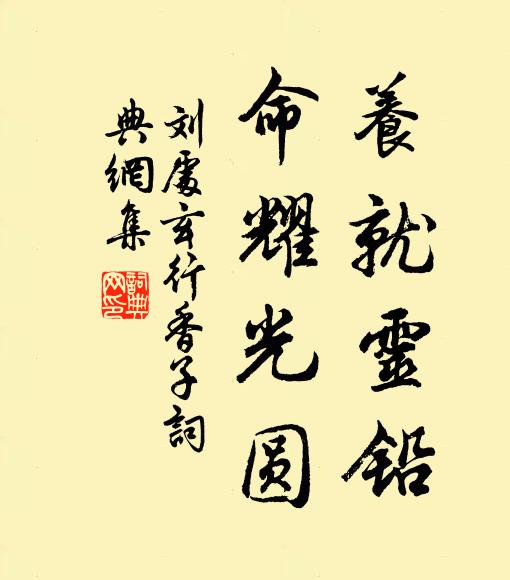 養就靈鉛
命耀光圆
刘處玄行香子詞
典網集
詞典网印